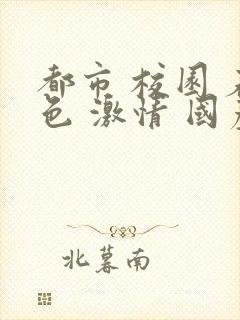 都市 校園
色 激情 國
北暮南